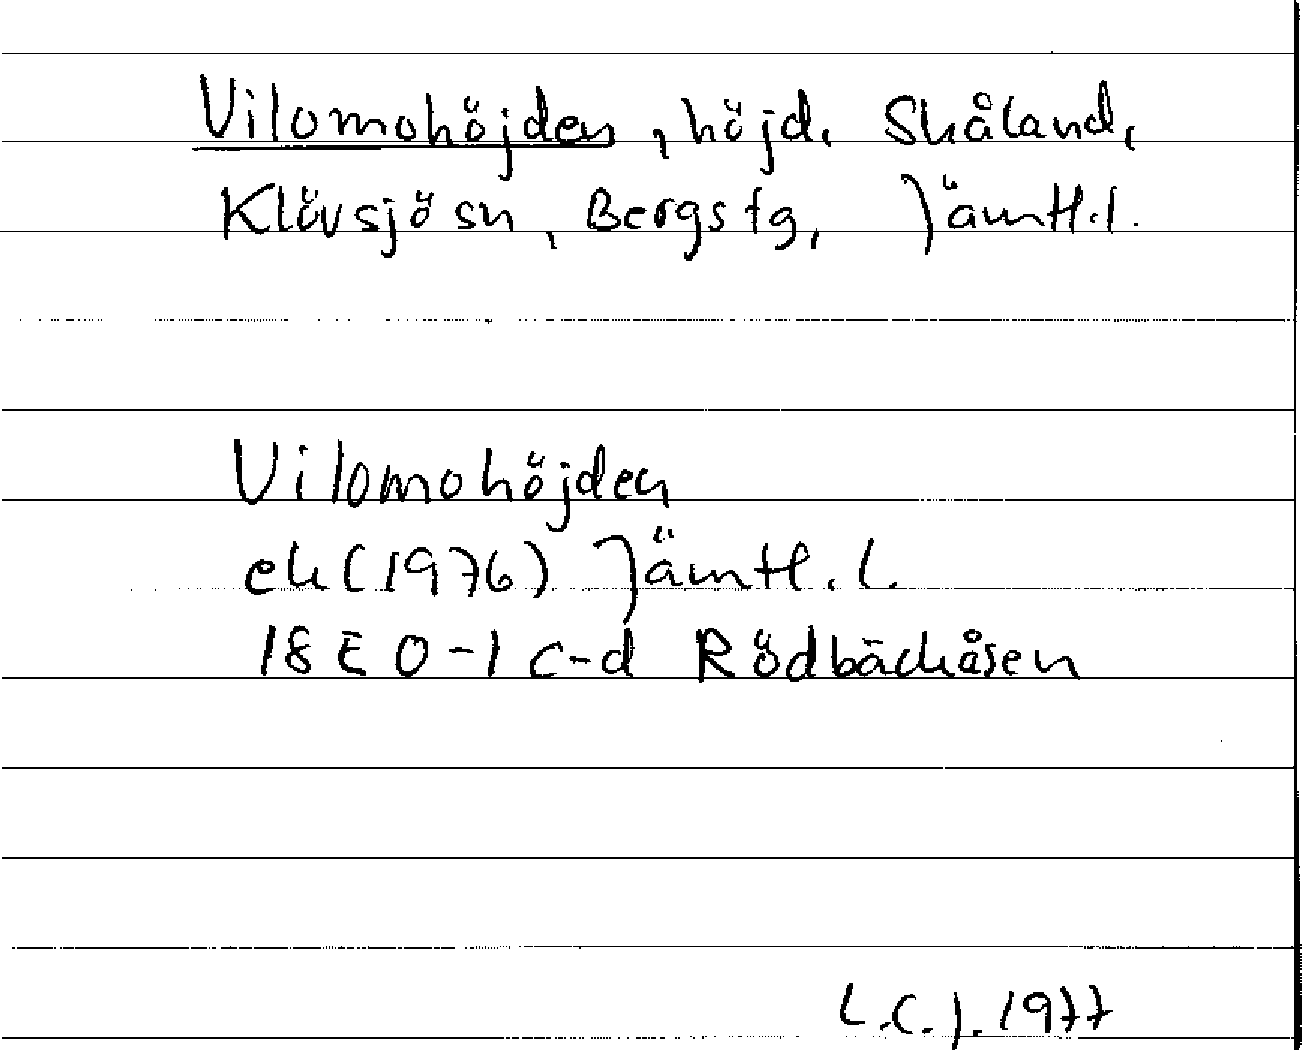 Vilomohöjden, höjd, Skåland,
Klövsjö sn, Bergs tg, Jämtl.l.
Vilomohöjden
ek (1976) Jämtl.l.
18E 0-1 c-d Rödbäckåsen
L.C.J. 1977